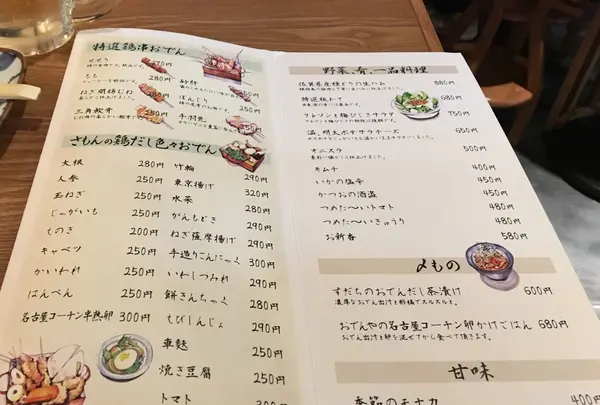 特選鶏串おでん
せせり
もも
250円
ねぎ明太つくね
280円
三角軟骨
250円
砂肝
250円
ぼんじり
250円
手羽先
さもんの鶏だし色々おでん
大根 280円
人参 250円
玉ねぎ 250円
じゃがいも 250円
きのこ 200円
キャベツ 250円
かいわれ 250円
はんぺん 250円
名古屋コーチン半熟卵 300円
竹輪 290円
東京揚げ 320円
水菜 280円
がんもどき 290円
ねぎ薩摩揚げ 290円
手造りこんにゃく 300円
いわしつみれ 290円
餅きんちゃく 280円
えびしんじょ 290円
車麩 290円
焼き豆腐 250円
トマト 300円
野菜、肴、一品料理
880円
680円
750円
温・明太ポテサラチーズ 650円
オニスラ 500円
キムチ 400円
いかの塩辛 450円
かつおの酒盗 450円
つめた〜いトマト 480円
つめた〜いきゅうり 480円
お新香 580円
〆もの
すだちのおでんだし茶漬け 600円
濃厚なおでん出汁と酢橘でスルスルと。
おでんやの名古屋コーチン卵かけごはん 680円
おでん出汁と卵を混ぜてから食べて頂きます。
甘味
季節のモナカ 400円